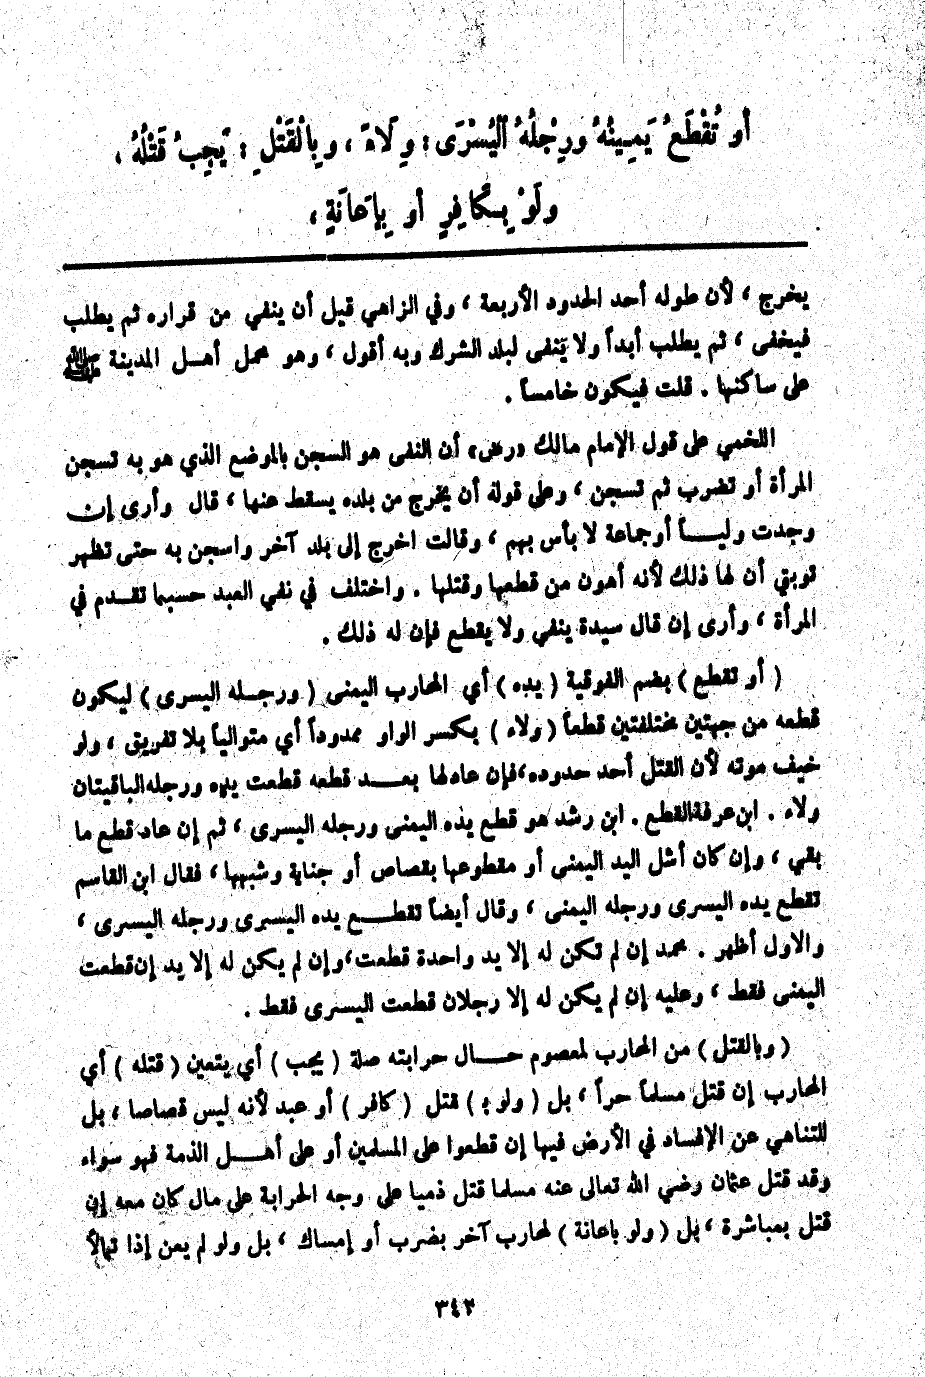 أو تُقْطَعُ يَمِينُهُ ورِجْلُهُ ٱلْيُسْرَى ؛ وِلَاءً ، وبِالْقَتْلِ ؛ يَجِبُ قَتْلُهُ ،
ولَوْ بِكَافِرٍ أو بِإعَانَةٍ ،
يخرج ، لأن طوله أحد الحدود الأربعة ، وفي الزاهي قيل أن ينفي من قراره ثم يطلب
فيخفى ، ثم يطلب أبداً ولا يَنفى لبلد الشرك وبه أقول ، وهو محمل أهل المدينة ﷺ
على ساكنها . قلت فيكون خامساً .
اللخمي على قول الإمام مالك «رض» أن النفى هو السجن بالموضع الذي هو به تسجن
المرأة أو تضرب ثم تسجن ، وعلى قوله أن يخرج من بلده يسقط عنها ، قال وأرى إن
وجدت وليـــاً أوجماعة لا بأس بهم ، وقالت اخرج إلى بلد آخر واسجن به حتى تظهر
توبتي أن لها ذلك لأنه أهون من قطعها وقتلها . واختلف في نفي العبد حسبما تقدم في
المرأة ، وأرى إن قال سيدة ينفي ولا يقطع فإن له ذلك .
( أو تقطع ) بضم الفوقية ( يده ) أي المحارب اليمنى ( ورجله اليسرى ) ليكون
قطعه من جهتين مختلفتين قطعاً ( ولاء ) بكسر الواو ممدوداً أي متوالياً بلا تفريق ، ولو
خيف موته لأن القتل أحد حدوده،فإن عادلها بعـــد قطعه قطعت يده ورجله الباقيتان
ولاء . ابن عرفة القطع . ابن رشد هو قطع يده اليمنى ورجله اليسرى ، ثم إن عاد قطع ما
بقي ، وإن كان أشل اليد اليمنى أو مقطوعها بقصاص أو جناية وشبهها ، فقال ابن القاسم
تقطع يده اليسرى ورجله اليمنى ، وقال أيضاً تقطـــع يده اليسرى ورجله اليسرى ،
والاول أظهر . محمد إن لم تكن له إلا يد واحدة قطعت،وإن لم يكن له إلا يد إن قطعت
اليمنى فقط ، وعليه إن لم يكن له إلا رجلان قطعت اليسرى فقط .
( وبالقتل ) من المحارب لمعصوم حـــال حرابته صلة ( يجب ) أي يتعين ( قتله ) أي
المحارب إن قتل مسلماً حراً ، بل ( ولو بـ ) قتل ( كافر ) أو عبد لأنه ليس قصاصا ، بل
للتناهي عن الإفساد في الأرض فيها إن قطعوا على المسلمين أو على أهـــل الذمة فهو سواء
وقد قتل عثمان رضي الله تعالى عنه مسلما قتل ذميا على وجه الحرابة على مال كان معه إن
قتل بمباشرة ، بل ( ولو باعانة ) لمحارب آخر بضرب أو إمساك ، بل ولو لم يعن إذا تمالأ
٣٤٢